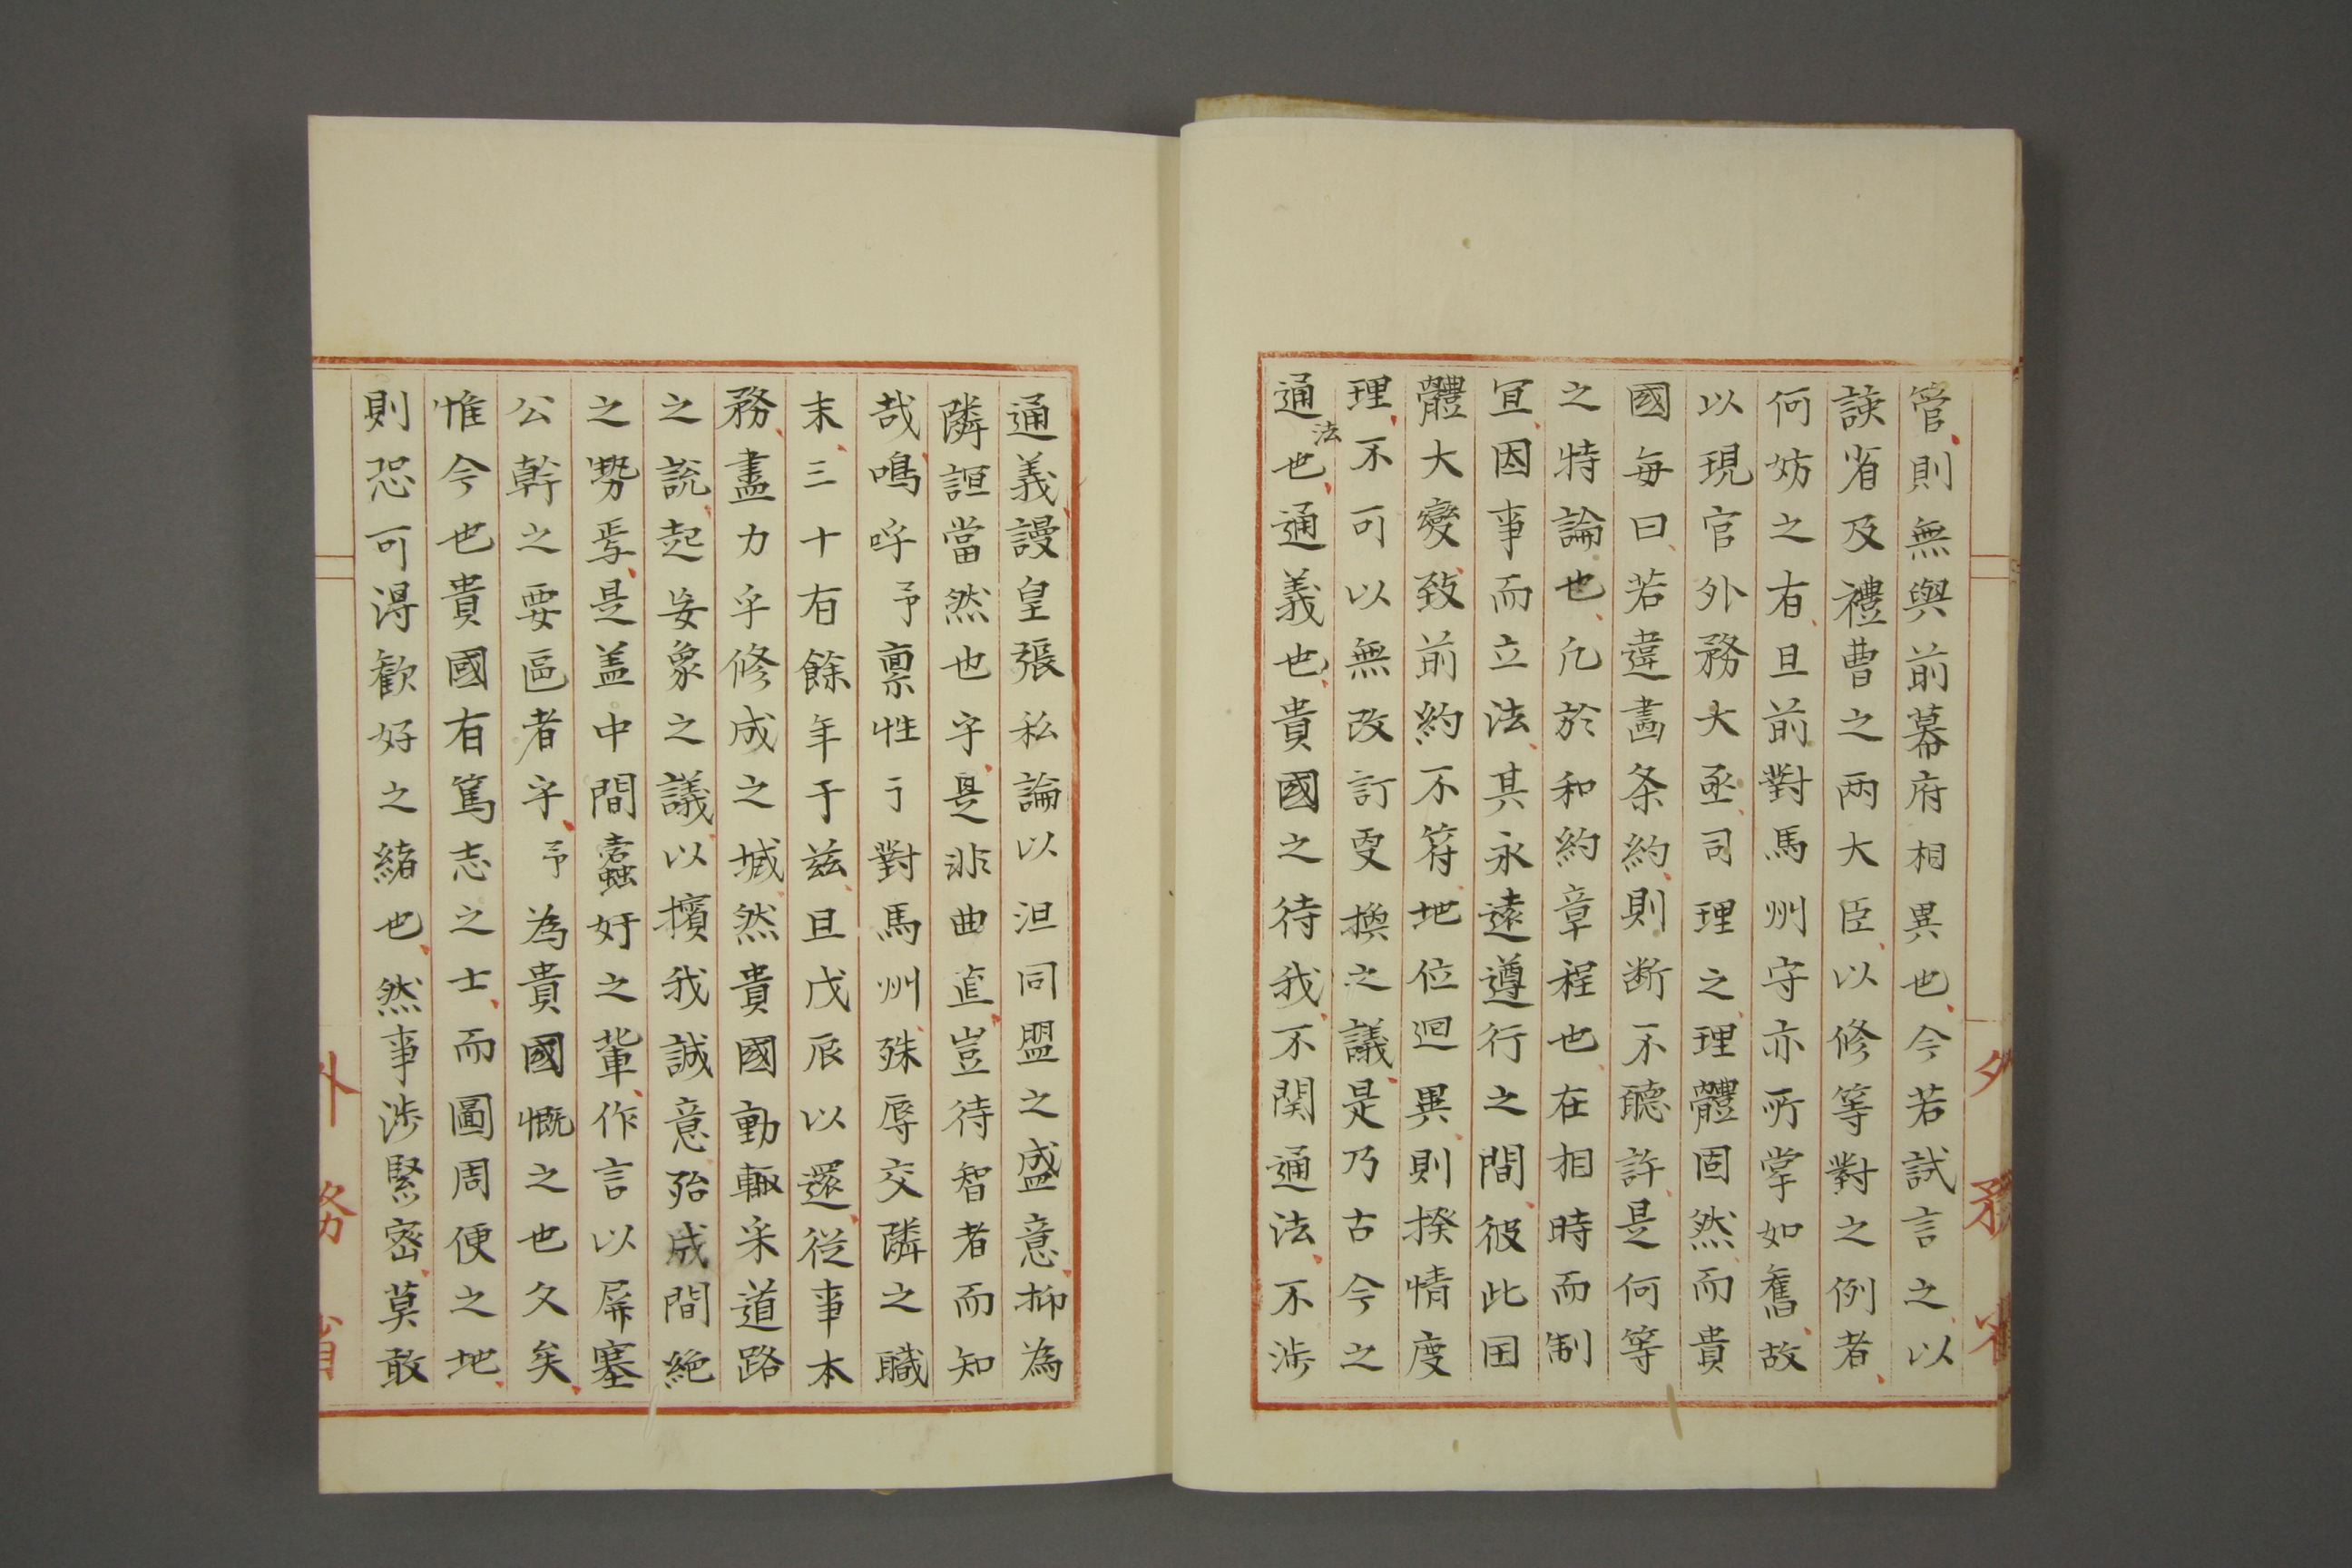 管、則無與前幕府相異也、今若試言之、以
該省及禮曹之两大臣、以修等對之例者、
何妨之有、且前對馬州守亦所掌如舊、故
以現官外務大丞、司理之、理體固然、而貴
國每曰、若違畵条約、則断不聽許、是何等
之特論也、凢於和約章程也、在相時而制
冝、因事而立法、其永遠遵行之間、彼此囯
體大變、致前約不符、地位迥異、則揆情度
理、不可以無改訂更換之議、是乃古今之
通法也、通義也、貴國之待我、不関通法、不涉
通義、謾皇張私論以泹同盟之盛意、抑為
隣誼當然也乎、是非曲直、豈待智者而知
哉、嗚呼予禀性亍對馬州、殊辱交隣之職
末、三十有餘年于兹、且戊辰以還、從事本
務、盡力乎修成之域、然貴國動輙采道路
之説、起妄象之議、以擯我誠意、殆成間絶
之勢焉、是盖中間蠧好之軰、作言以屏塞
公幹之要區者乎、予為貴國慨之也久矣、
惟今也貴國有篤志之士、而圖周便之地、
則恐可淂歡好之緒也、然事涉緊密、莫敢
外務省
外務省